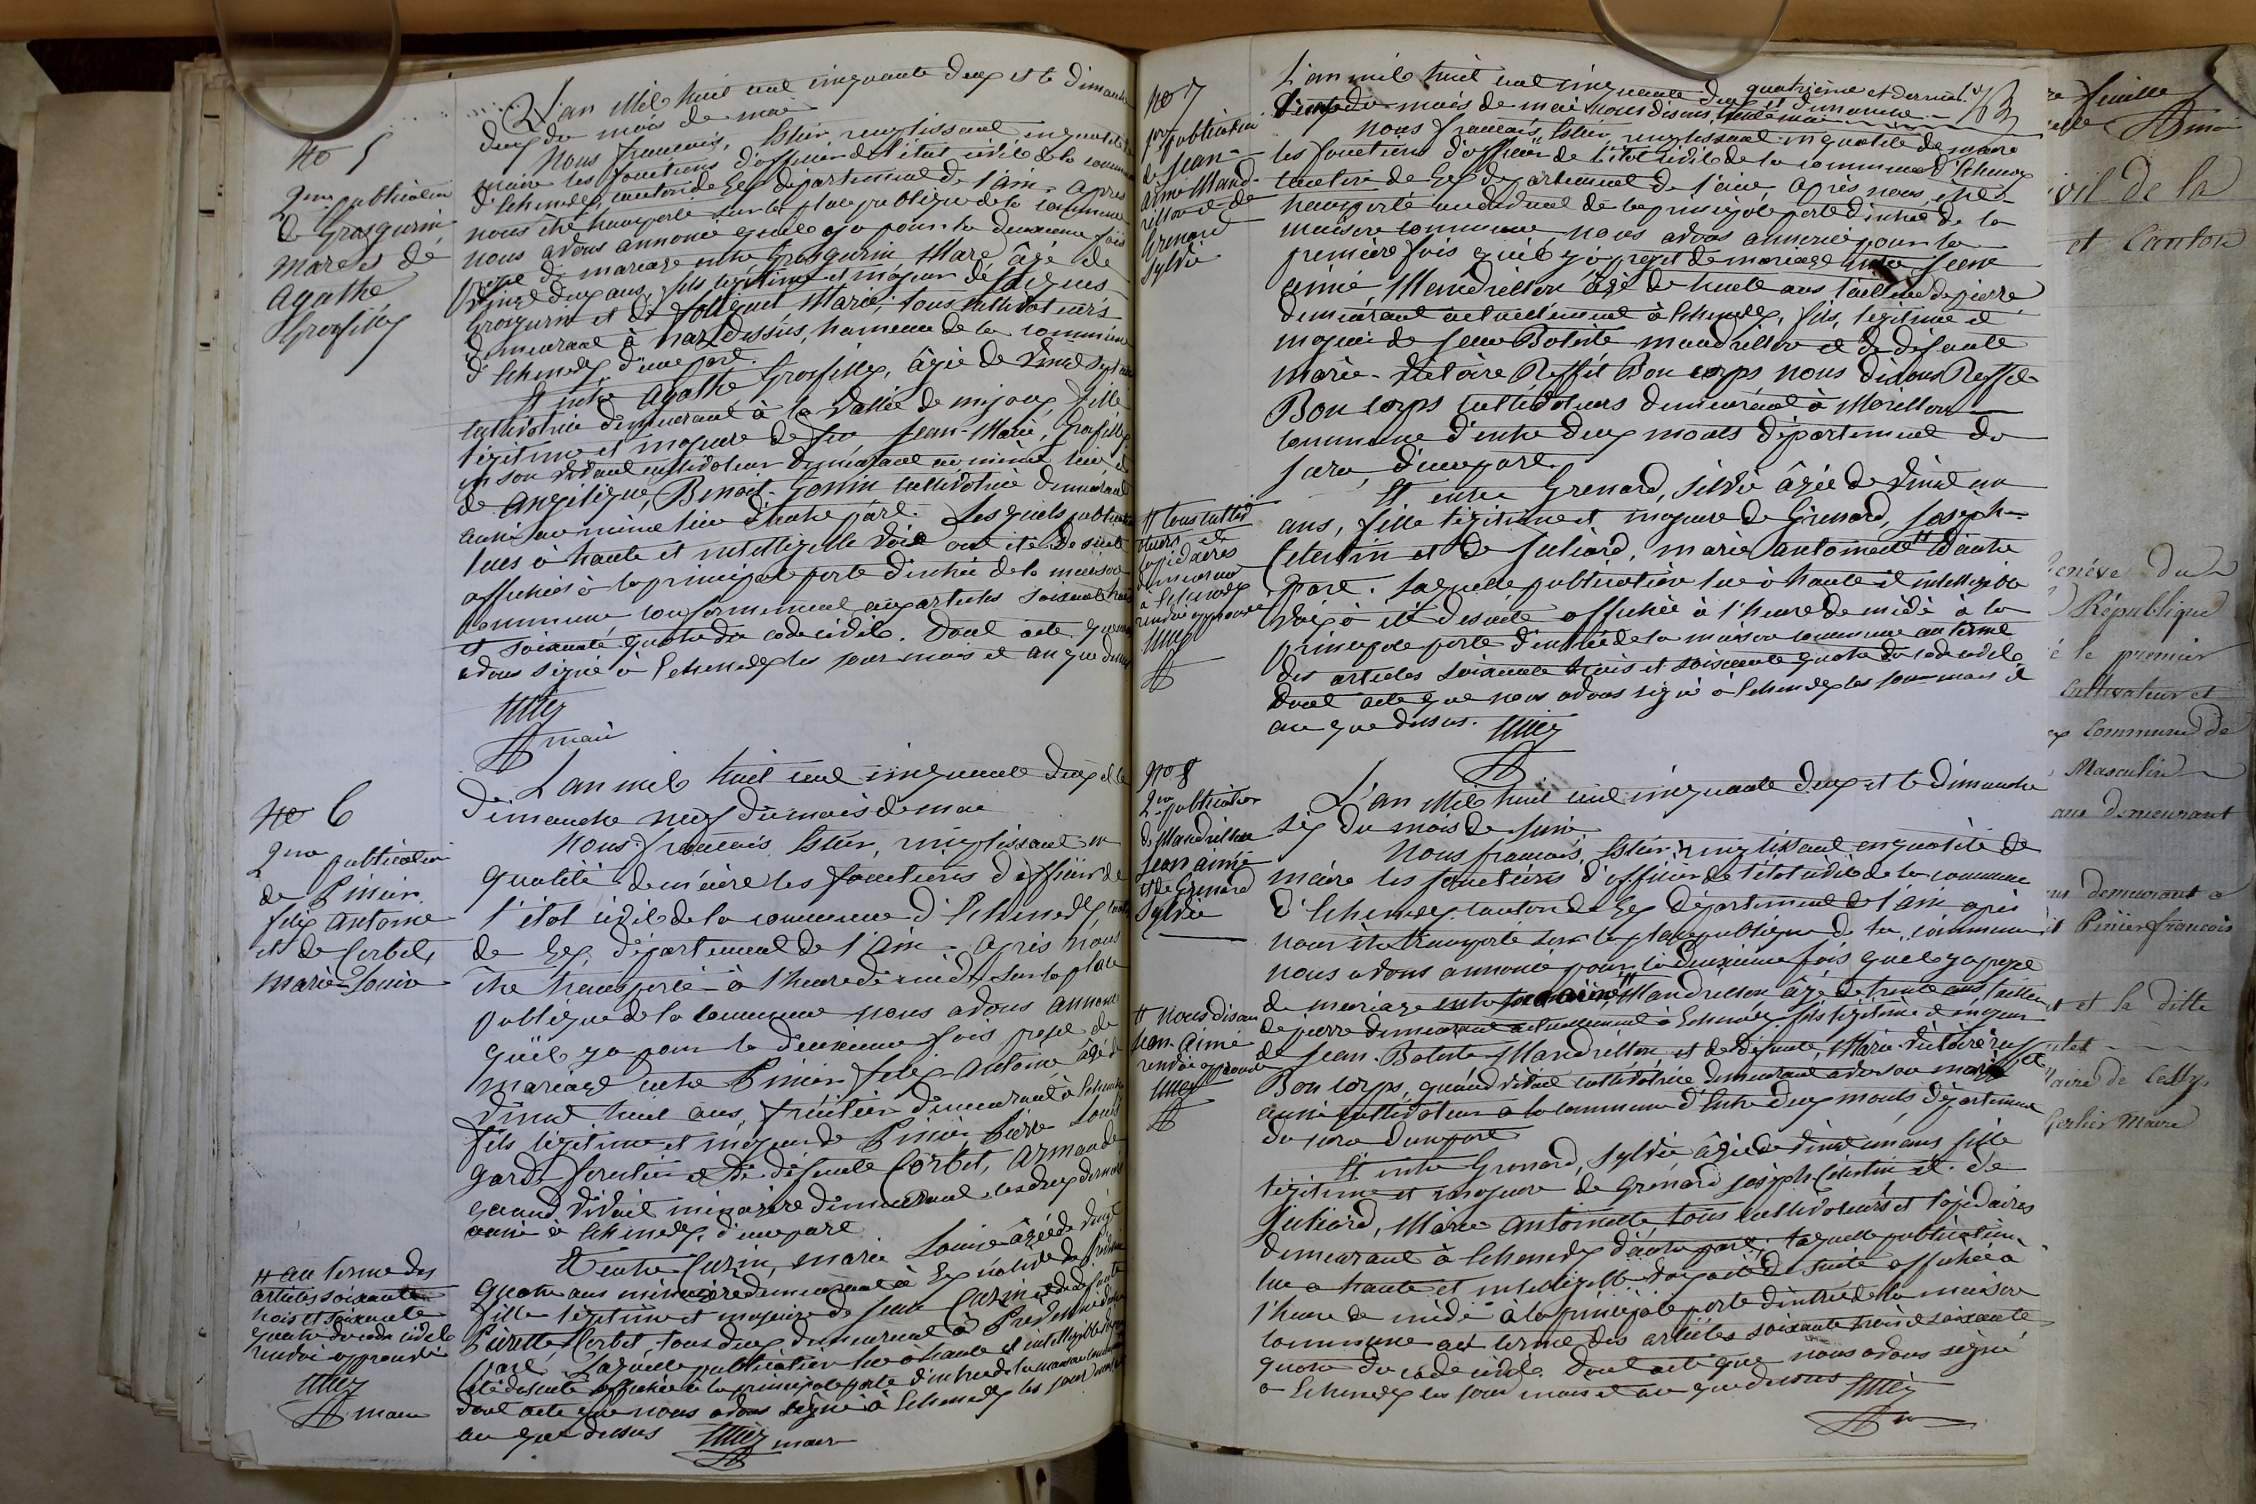 No 5
2me publication
de Grosgurin
Marc et de
Agathe
Grosfilley
L'an Mil huit cent cinquante deux et le dimanche
deux du mois de mai
Nous François, remplissant en qualité de
maire les fonctions d'officier de l'état civil de la commune
d'Echenevex, canton de Gex département de l'ain. Après
nous être transporté sur la place publique de la commune
nous avons annoncé qu'il y a pour la deuxième fois
projet de mariage entre Grosgurin Marc âgé de
vingt deux ans, fils légitime et majeur de
Grosgurin et de Marie, tous cultivateurs
demeurant à Naz-Dessus, hameau de la commune
d'Echenevex, d'une part.
Et entre Agathe Grosfilley, âgée de vingt sept ans
cultivatrice demeurant à la vallée de mijoux, fille
légitime et majeure de feu Jean-Marie, Grosfilley
en son vivant cultivateur demeurant au même lieu, et
de Angélique, Benoit-Gonin cultivatrice demeurant
aussi au même lieu d'autre part. Lesquels publications
lues à haute et intelligible voix ont été de suite
affichées à la principale porte d'entrée de la maison
commune conformément aux articles soixante trois
et soixante quatre du code civil. Dont acte que nous
avons signé à Echenevex les jour mois et an que dessus
maire
No 6
2me publication
de Pinier
félix antoine
et de
marie-Louise
L'an mil huit cent cinquante deux et le
dimanche neuf du mois de mai
Nous François, remplissant en
qualité de maire les fonctions d'officier de
l'état civil de la commune d'Echenevex, canton
de Gex, département de l'Ain. Après nous
être transporté à l'heure de midi, sur la place
publique de la commune nous avons annoncé
qu'il y a pour la deuxième fois projet de
mariage entre Pinier félix-antoine, âgé de
vingt huit ans, fruitier demeurant à Echenevex
fils légitime et majeur de Pinier Pierre Louis
garde forestier et de défunte Corbet, Armande
quand vivait ménagère demeurant les deux
aussi à Echenevex, d'une part
Et entre Curin, marie Louise âgée de vingt
quatre ans ménagère demeurant à Gex native de
fille légitime et majeure de Jean Curin et de défunte
Pierrette Corbet, tous deux demeurant à
part. Laquelle publication lue à haute et intelligible voix
été de suite affichée à la principale porte d'entrée de la maison commune
dont acte que nous avons signé à Echenevex les jour mois et
an que dessus maire
# au terme des
articles soixante
trois et soixante
quatre du code civil
renvoi approuvé
maire
No 7
1ere publication
de Jean-
aimé Mand-
rillon et de
Grenard
Sylvie
L'an mil huit cent cinquante deux quatrième et dernier
du mois de mai nous disons
Nous François, remplissant en qualité de maire
les fonctions d'officier de l'état civil de la commune d'Echenevex
canton de Gex département de l'ain. Après nous être
transporté au devant de la principale porte d'entrée de la
maison commune, nous avons annoncé pour la
première fois qu'il y a projet de mariage entre Jean
aimé Mandrillon âgé de trente ans tailleur de pierre
demeurant actuellement à Echenevex, fils, légitime et
majeur de Jean Batiste mandrillon et de défunte
marie-victoire Reffet Bon corps nous disons Reffet
Bon corps cultivateurs demeurant à Morillon
commune d'entre deux monts département du
Jura, d'une part.
Et entre Grenard, Silvie âgée de vingt un
ans, fille légitime et majeure de Grenard, Joseph-
Celestin et de Juliard, marie antoinette # d'autre
part. Laquelle publication lue à haute et intelligible
voix a été de suite affichée à l'heure de midi à la
principale porte d'entrée de la maison commune au terme
des articles soixante trois et soixante quatre du code civil
Dont acte que nous avons signé à Echenevex les jour mois et
an que dessus.
# tous cultiv
ateurs et
lapidaires
demeurant
à Echenevex
renvoi approuvé
No 8
2me publication
de Mandrillon
Jean aimé
et de Grenard
Sylvie
L'an Mil huit cent cinquante deux et le dimanche
six du mois de Juin.
Nous François, remplissant en qualité de
maire les fonctions d'officier de l'état civil de la commune
d'Echenevex canton de Gex département de l'Ain après
nous être transporté sur la place publique de la commune
nous avons annoncé pour la deuxième fois qu'il y a projet
de mariage entre # Mandrillon âgé de trente ans, tailleur
de pierre demeurant actuellement à Echenevex fils légitime et majeur
de Jean-Batiste Mandrillon et de défunte, Marie-Victoire Reffet
Bon corps, quand vivait cultivatrice demeurant avec son mari
aussi cultivateur à la commune d'Entre deux monts, département
du Jura d'une part
Et entre Grenard, Sylvie âgée de vingt un ans fille
légitime et majeure de Grenard Joseph Célestin et de
Juliard, Marie Antoinette, tous cultivateurs et lapidaires
demeurant à Echenevex d'autre part; laquelle publication
lue à haute et intelligible voix a été de suite affichée à
l'heure de midi à la principale porte d'entrée de la maison
commune au terme des articles soixante trois et soixante
quatre du code civil. Dont acte que nous avons signé
à Echenevex les jour mois et an que dessus
# nous disons
Jean-Aimé
renvoi approuvé
feuille
civil de la
et Canton
Genève du
République
le premier
Cultivateur et
commune de
Masculin
demeurant
demeurant à
Pinier françois
et la ditte
Maire de Cessy
Maire